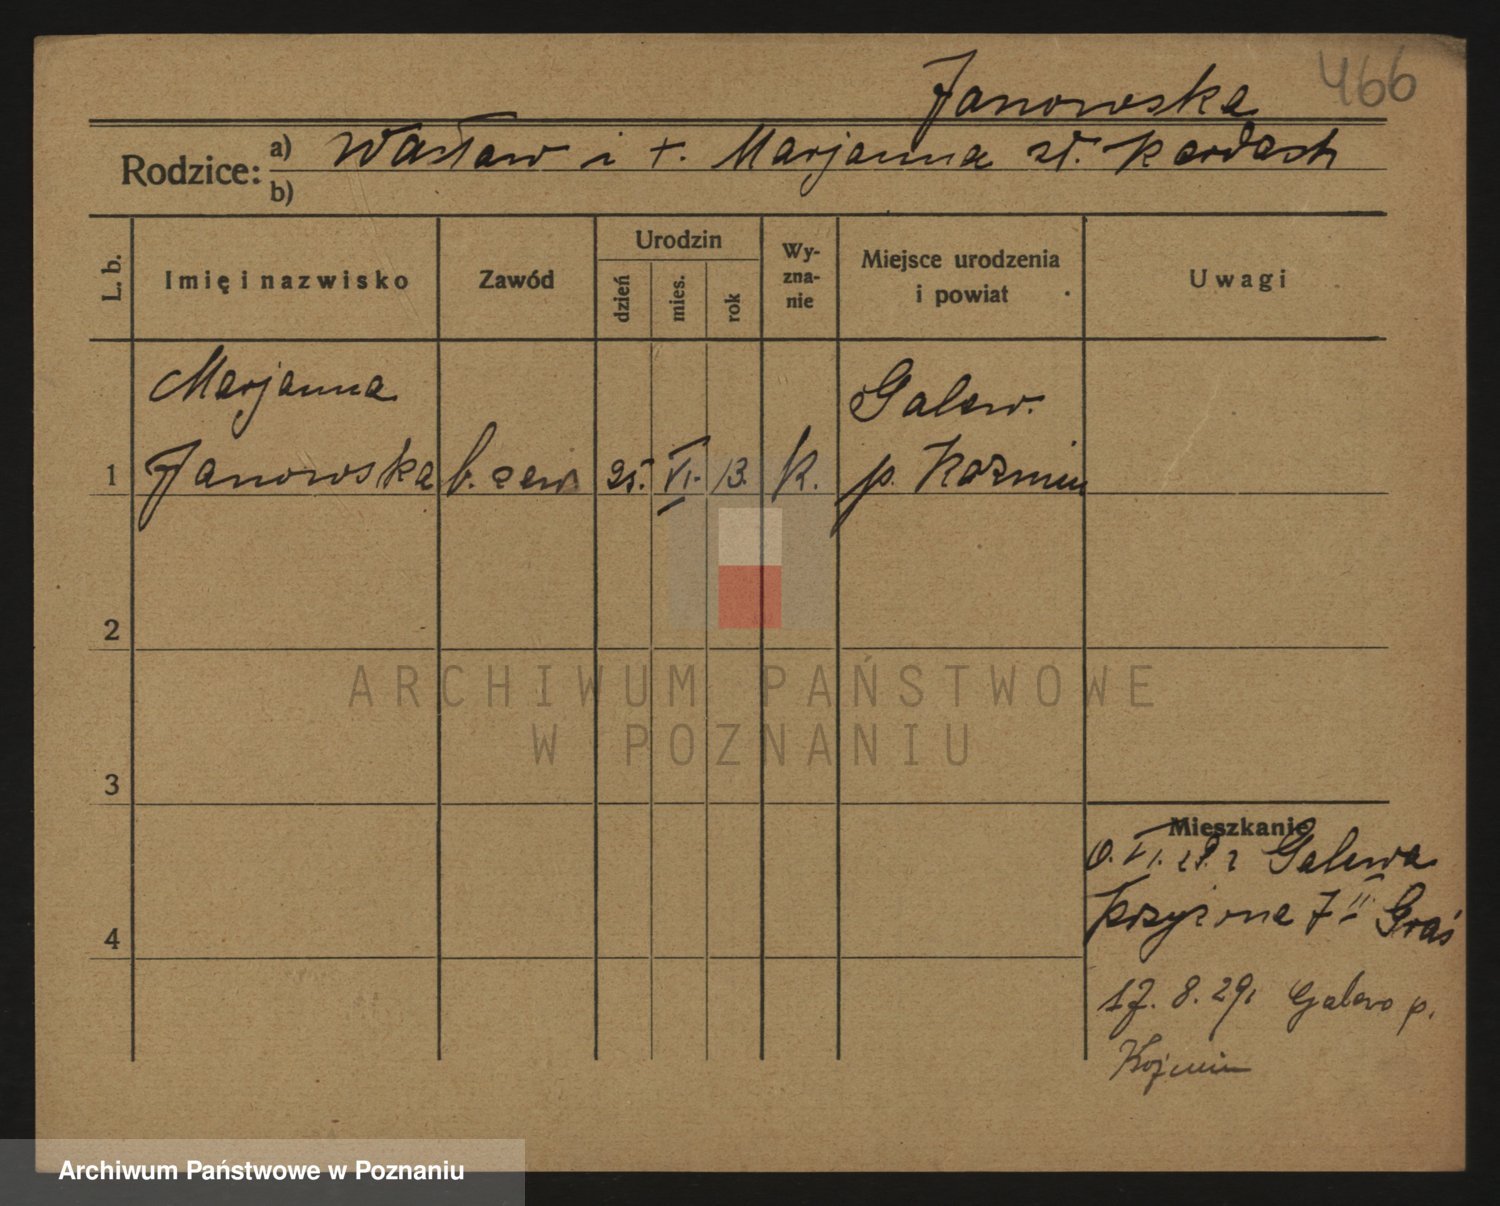 466
Janowska
Rodzice: a) Wacław i t. Marjanna zd. Kardach
b)
L. b. Imię i nazwisko Zawód Urodzin dzień mies. rok Wy-zna-nie Miejsce urodzenia i powiat Uwagi
Marjanna Galew.
1 Janowska b. zaw. 25. VI. 13. k. p. Koźmin
2
ARCHIWUM PAŃSTWOWE
W POZNANIU
3
Mieszkanie
VI. 29. z Galewa
4 7 II
17. 8. 29. Galewo p.
Koźmin
Archiwum Państwowe w Poznaniu